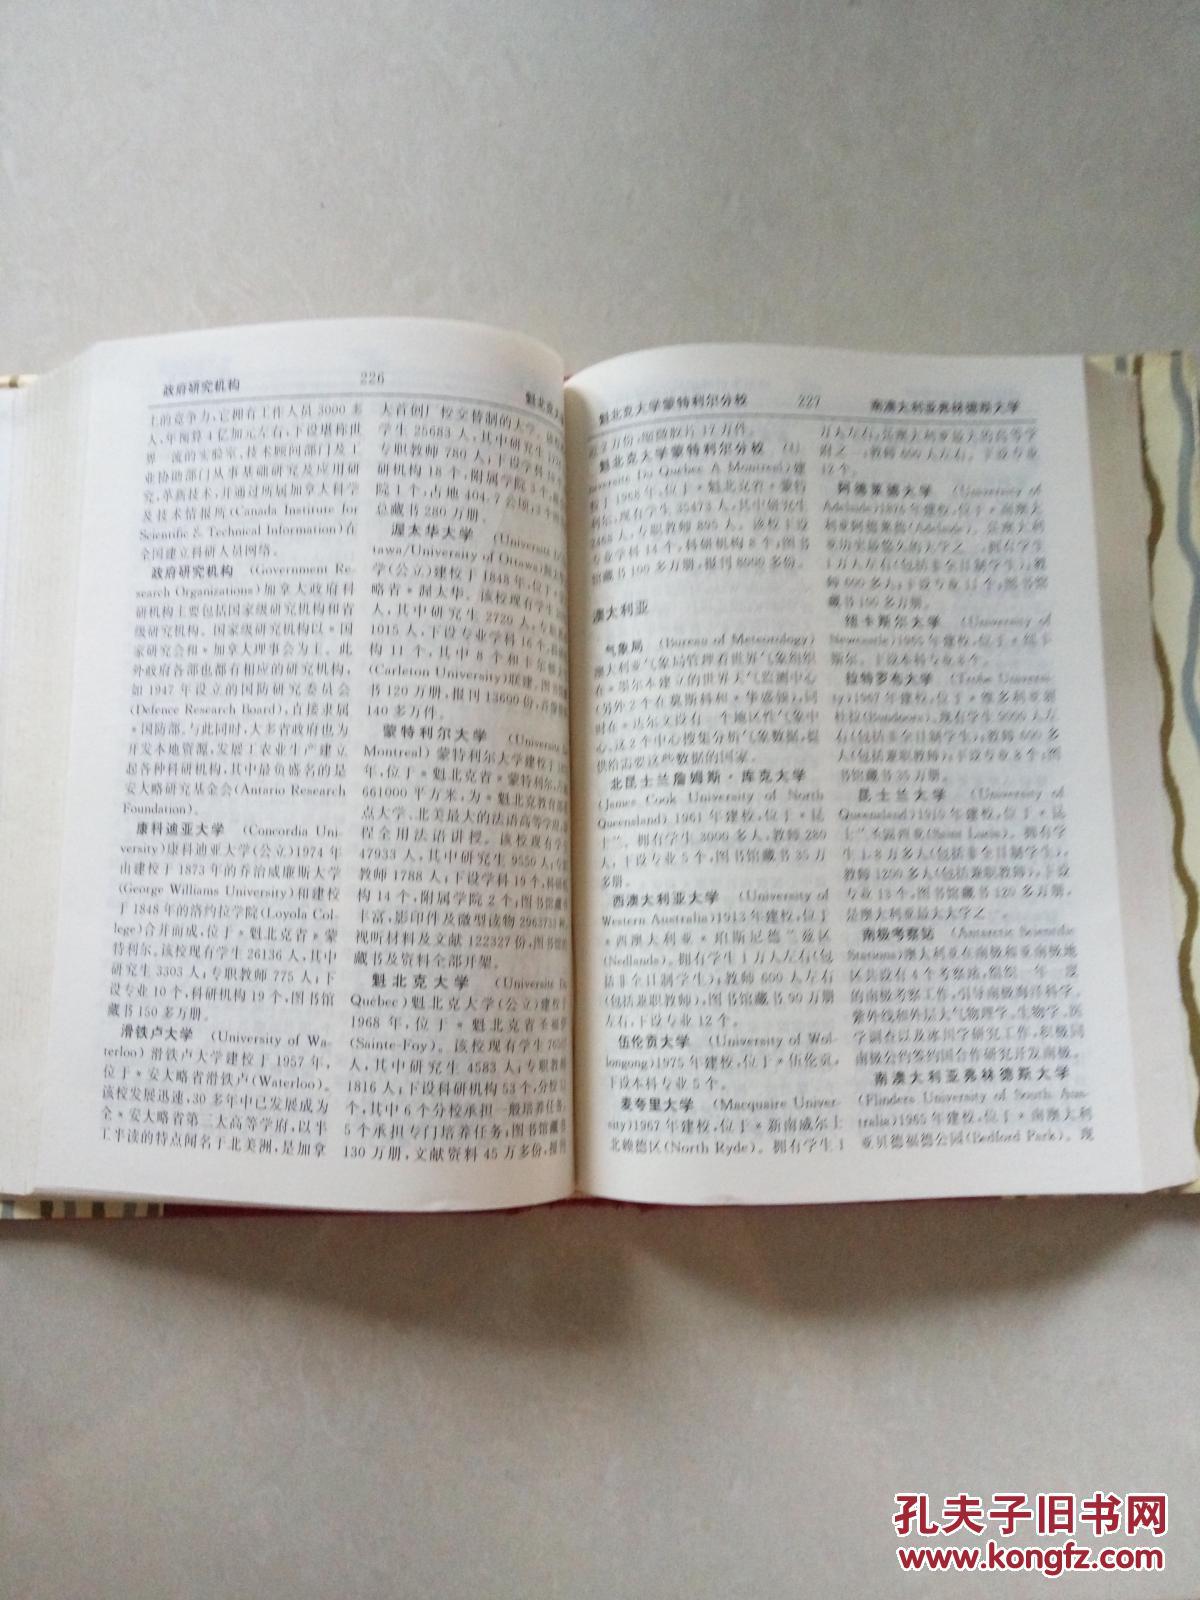 政府研究机构
226
上的竞争力,它拥有工作人员 3000 多
人,年预算 4 亿加元左右,下设堪称世
界一流的实验室,技术顾问部门及工
业协助部门从事基础研究及应用研
究,革新技术,并通过所属加拿大科学
及技术情报所(Canada Institute for
Scientific & Technical Information)在
全国建立科研人员网络。
政府研究机构 (Government Re-
search Organizations)加拿大政府科
研机构主要包括国家级研究机构和省
级研究机构。国家级研究机构以*国
家研究会和*加拿大理事会为主。此
外政府各部也都有相应的研究机构,
如 1947 年设立的国防研究委员会
(Defence Research Board),直接隶属
*国防部。与此同时,大多省政府也为
开发本地资源,发展工农业生产建立
起各种科研机构,其中最负盛名的是
安大略研究基金会(Antario Research
Foundation)。
康科迪亚大学 (Concordia Uni-
versity)康科迪亚大学(公立)1974 年
由建校于 1873 年的乔治威廉斯大学
(George Williams University)和建校
于 1848 年的洛约拉学院(Loyola Col-
lege)合并而成,位于*魁北克省*蒙
特利尔。该校现有学生 26136 人,其中
研究生 3303 人;专职教师 775 人;下
设专业 10 个,科研机构 19 个,图书馆
藏书 150 多万册。
滑铁卢大学 (University of Wa-
terloo) 滑铁卢大学建校于 1957 年,
位于*安大略省滑铁卢(Waterloo)。
该校发展迅速,30 多年中已发展成为
全*安大略省第二大高等学府,以半
工半读的特点闻名于北美洲,是加拿
大首创厂校交替制的大学。该校
学生 25683 人,其中研究生
专职教师 780 人;下设学科
研机构 18 个,附属学院 3 个,
院 1 个,占地 404.7 公顷;3 个图
总藏书 280 万册。
渥太华大学 (Université
tawa/University of Ottawa)
学(公立)建校于 1848 年,位于
略省*渥太华。该校现有学生
人,其中研究生 2720 人,专职教
1015 人,下设专业学科 16 个,
构 11 个,其中 8 个和卡尔顿大
(Carleton University)联建。图书馆
书 120 万册,报刊 13600 份,
140 多万件。
蒙特利尔大学 (Université De
Montreal) 蒙特利尔大学建校于
年,位于*魁北克省*蒙特利尔,
661000 平方米,为*魁北克教育部
点大学、北美最大的法语高等学府,
程全用法语讲授。该校现有学
47933 人,其中研究生 9550 人;专
教师 1788 人;下设学科 19 个,科研
构 14 个,附属学院 2 个;图书馆
丰富,影印件及微型读物 296373
视听材料及文献 122327 份,图书馆
藏书及资料全部开架。
魁北克大学 (Université Du
Québec) 魁北克大学(公立)建校于
1968 年,位于*魁北克省圣福伊
(Sainte-Foy)。该校现有学生
人,其中研究生 4583 人;专职教师
1816 人;下设科研机构 53 个,分校
个,其中 6 个分校承担一般培养任务,
5 个承担专门培养任务;图书馆藏书
130 万册,文献资料 45 万多份,报刊
魁北克大学蒙特利尔分校
227
南澳大利亚弗林德斯大学
近 2 万份,缩微胶片 17 万件。
魁北克大学蒙特利尔分校 (U-
niversité Du Québec À Montreal)建
校于 1968 年,位于*魁北克省*蒙特
利尔,现有学生 35473 人,其中研究生
2468 人,专职教师 895 人。该校下设
专业学科 14 个,科研机构 8 个;图书
馆藏书 100 多万册,报刊 8000 多份。
澳大利亚
气象局 (Bureau of Meteorology)
澳大利亚气象局管理着世界气象组织
在*墨尔本建立的世界天气监测中心
(另外 2 个在莫斯科和*华盛顿),同
时在*达尔文设有一个地区性气象中
心,这 2 个中心搜集分析气象数据,提
供给需要这些数据的国家。
北昆士兰詹姆斯·库克大学
(James Cook University of North
Queensland) 1961 年建校,位于*昆
士兰。拥有学生 3000 多人,教师 280
人,下设专业 5 个,图书馆藏书 35 万
多册。
西澳大利亚大学 (University of
Western Australia)1913 年建校,位于
*西澳大利亚*珀斯尼德兰兹区
(Nedlands)。拥有学生 1 万人左右(包
括非全日制学生);教师 600 人左右
(包括兼职教师),图书馆藏书 90 万册
左右,下设专业 12 个。
伍伦贡大学 (University of Wol-
longong)1975 年建校,位于*伍伦贡,
下设本科专业 5 个。
麦夸里大学 (Macquaire Univer-
sity)1967 年建校,位于*新南威尔士
北赖德区(North Ryde)。拥有学生 1
万人左右,是澳大利亚最大的高等学
府之一;教师 600 人左右。下设专业
12 个。
阿德莱德大学 (University of
Adelaide)1874 年建校,位于*南澳大
利亚阿德莱德(Adelaide)。是澳大利
亚历史最悠久的大学之一,拥有学生
1 万人左右(包括非全日制学生);教
师 600 多人;下设专业 11 个;图书馆
藏书 100 多万册。
纽卡斯尔大学 (University of
Newcastle)1965 年建校,位于*纽卡
斯尔。下设本科专业 8 个。
拉特罗布大学 (Trobe Universi-
ty)1967 年建校,位于*维多利亚邦
杜拉(Bundoora)。现有学生 9000 人左
右(包括非全日制学生);教师 600 多
人(包括兼职教师),下设专业 8 个;图
书馆藏书 35 万册。
昆士兰大学 (University of
Queensland)1910 年建校,位于*昆
士兰圣露西亚(Saint Lucia)。拥有学
生 1.8 万多人(包括非全日制学生),
教师 1200 多人(包括兼职教师),下设
专业 13 个,图书馆藏书 120 多万册,
是澳大利亚最大大学之一。
南极考察站 (Antarctic Scientific
Stations)澳大利亚在南极和亚南极地
区共设有 4 个考察站,组织一年一度
的南极考察工作,引导南极海洋科学,
紫外线和外层大气物理学,生物学,医
学调查以及冰川学研究工作,积极同
南极公约签约国合作研究开发南极。
南澳大利亚弗林德斯大学
(Flinders University of South Aus-
tralia)1965 年建校,位于*南澳大利
亚贝德福德公园(Bedford Park)。现
孔夫子旧书网
www.kongfz.com